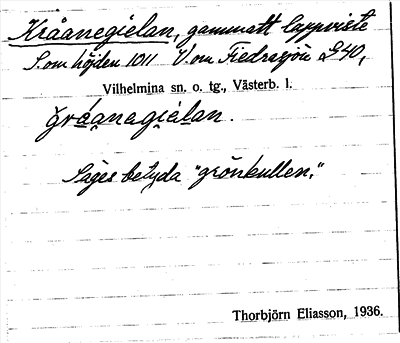 Kråanegielan, gammalt lappviste
S.om höjden 1011 V.om Fiedrasjön G40,
Vilhelmina sn. o. tg., Västerb. l.
gråanagielan.
Säges betyda "grönkullen."
Thorbjörn Eliasson, 1936.